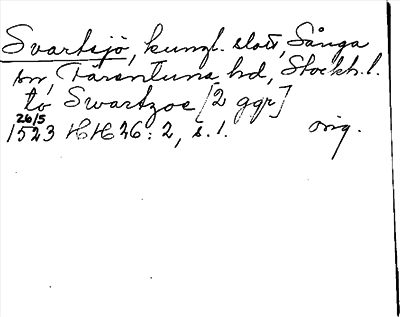 Svartsjö, kungl. slott, Sånga
sn, Färentuna hd, Stockh. l.
to Swartzoe [2 ggr]
26/5
1523 HH 26: 2, s. 1. orig.